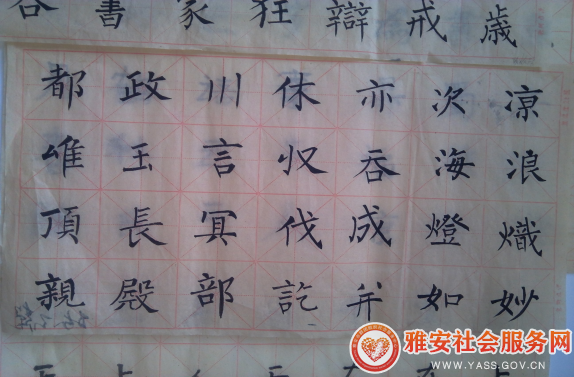 書 狂 戒
都 政 川 休 亦 次 涼
唯 玉 言 収 吞 海 浪
頂 長 冥 伐 成 燈 熾
親 殿 部 訖 并 如 妙
雅安社会服务网
WWW.YASS.GOV.CN